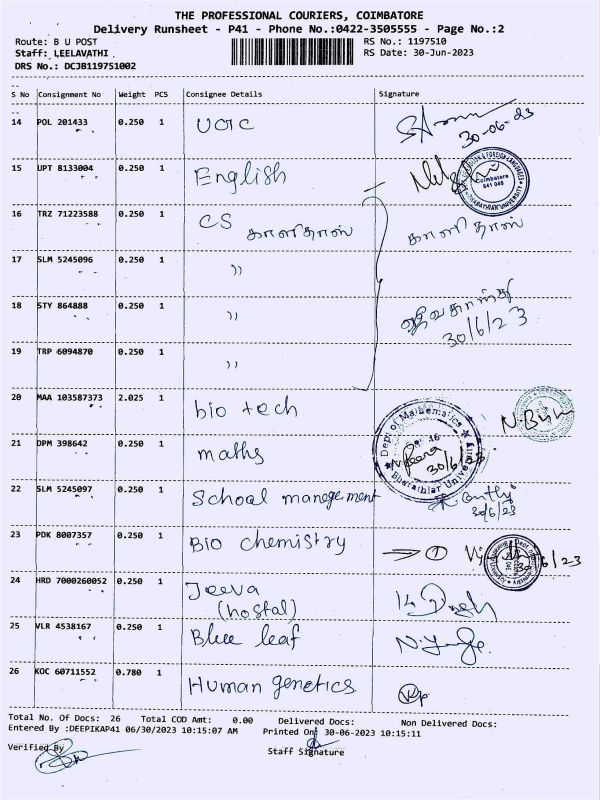 THE PROFESSIONAL COURIERS, COIMBATORE
Delivery Runsheet - P41 - Phone No.:0422-3505555 - Page No.:2
Route: B U POST RS No.: 1197510
Staff: LEELAVATHI RS Date: 30-Jun-2023
DRS No.: DCJB119751002
S No Consignment No Weight PCS Consignee Details Signature
14 POL 201433 0.250 1 30-06-23
15 UPT 8133004 0.250 1 English
Coimbatore 641 046
BHARATHIAR UNIVERSITY
16 TRZ 71223588 0.250 1 CS காளிதாஸ் காளிதாஸ்
17 SLM 5245096 0.250 1 ,,
18 STY 864888 0.250 1 ,, 30/6/23
19 TRP 6094870 0.250 1 ,,
20 MAA 103587373 2.025 1 bio tech
21 DPM 398642 0.250 1 maths 30/6/23
Dept of Mathematics
Bharathiar University
22 SLM 5245097 0.250 1 School management 30/6/23
23 PDK 8007357 0.250 1 Bio chemistry → ① 30/6/23
24 HRD 7000260052 0.250 1 Jeeva
(hostal)
25 VLR 4538167 0.250 1 Blue leaf
26 KOC 60711552 0.780 1 Human genetics
Total No. Of Docs: 26 Total COD Amt: 0.00 Delivered Docs: Non Delivered Docs:
Entered By :DEEPIKAP41 06/30/2023 10:15:07 AM Printed On: 30-06-2023 10:15:11
Verified By Staff Signature